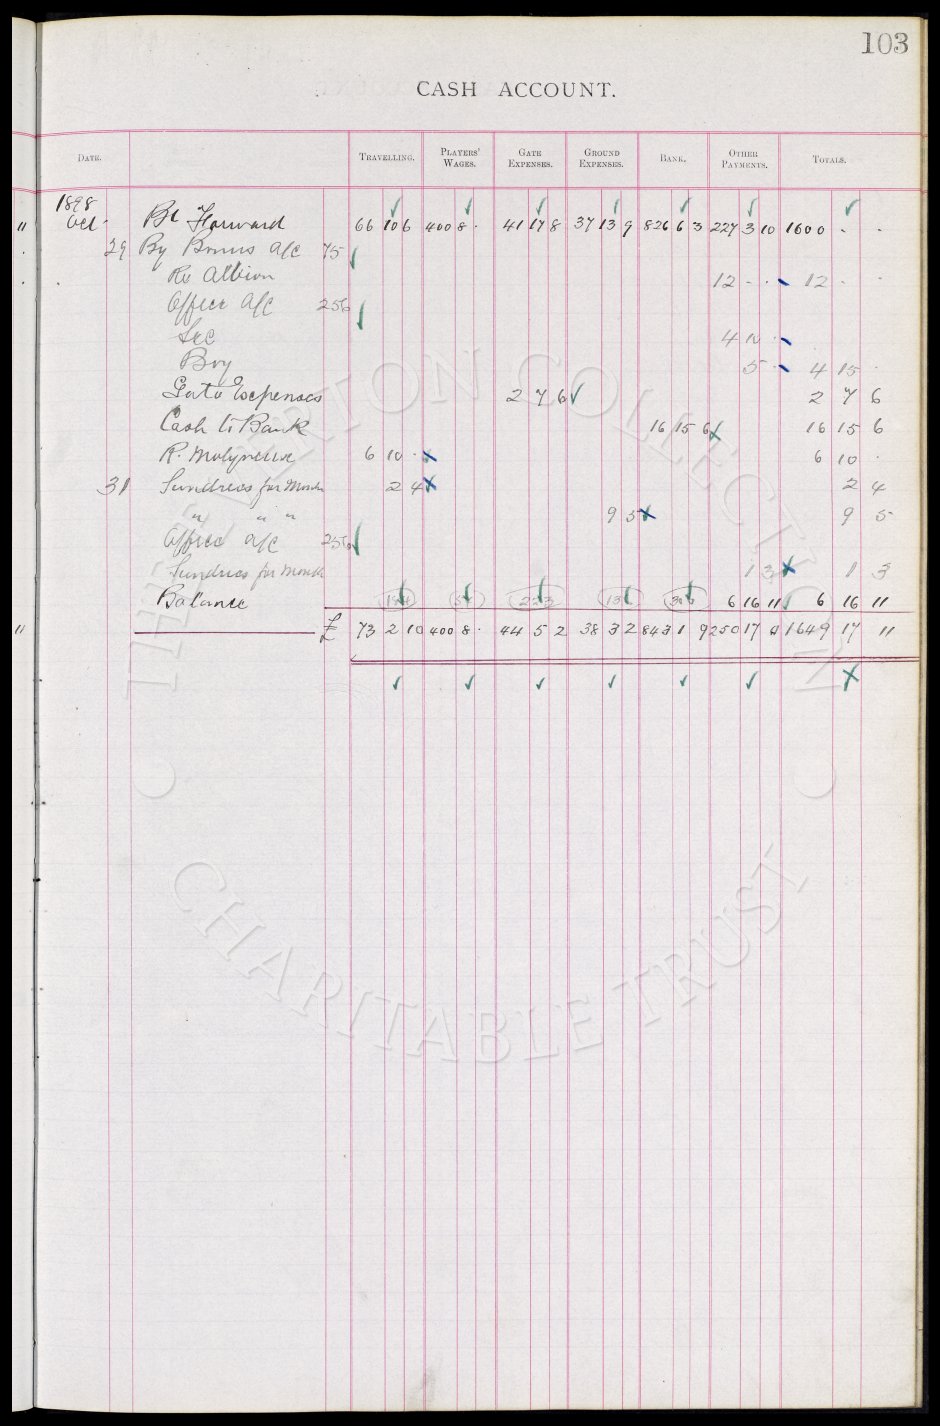 103
CASH ACCOUNT.
DATE. TRAVELLING. PLAYERS' WAGES. GATE EXPENSES. GROUND EXPENSES. BANK. OTHER PAYMENTS. TOTALS.
1898
Oct. Bt Forward 66 10 6 400 8 . 41 17 8 37 13 9 826 6 3 227 3 10 1600 . .
29 By Bonus a/c 75
Re Albion 12 - . 12 . .
Office a/c 256
Sec 4 10 .
Boy 5 . 4 15 .
Gate Expenses 2 7 6 2 7 6
Cash to Bank 16 15 6 16 15 6
R. Molyneux 6 10 . 6 10 .
31 Sundries for Month 2 4 2 4
" " " 9 5 9 5
Office a/c 256
Sundries for Month 1 3 1 3
Balance 6 16 11 6 16 11
£ 73 2 10 400 8 . 44 5 2 38 3 2 843 1 9 250 17 0 1649 17 11
THE EVERTON COLLECTION
CHARITABLE TRUST